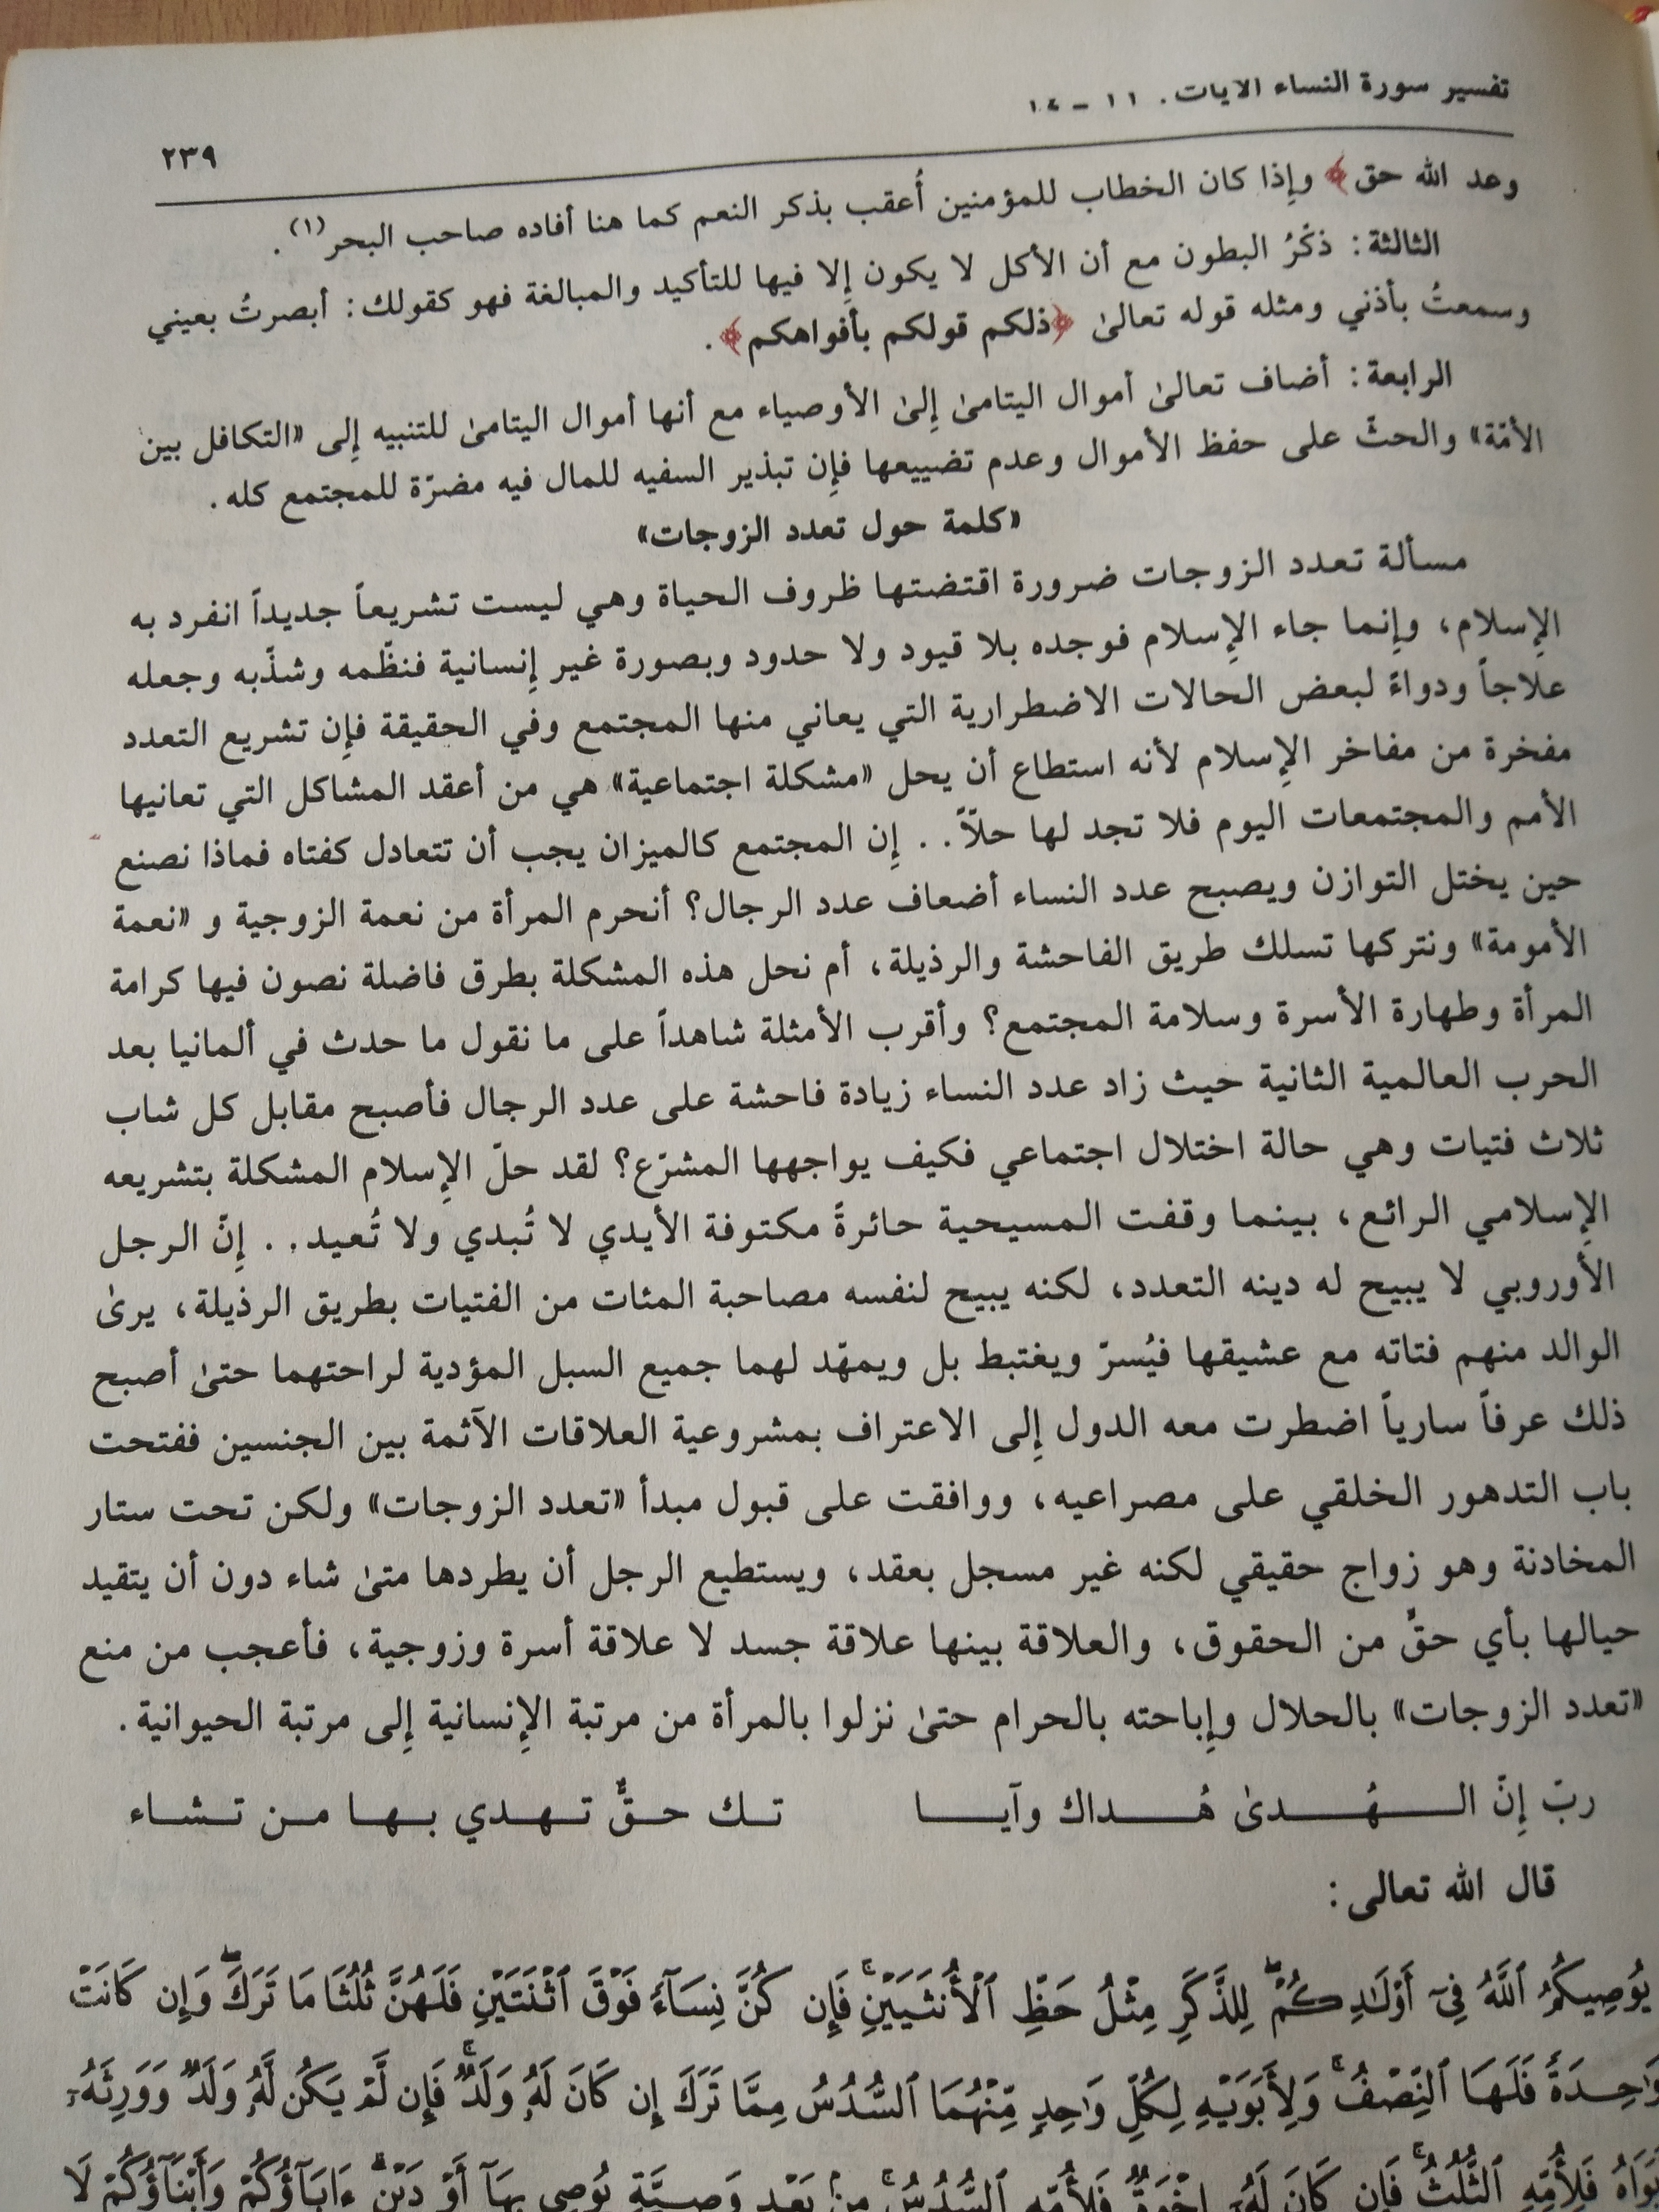 تفسير سورة النساء الايات. ١١ - ١٤
٢٣٩
وعد الله حق﴾ وإِذا كان الخطاب للمؤمنين أُعقب بذكر النعم كما هنا أفاده صاحب البحر(١).
الثالثة: ذكْرُ البطون مع أن الأكل لا يكون إِلا فيها للتأكيد والمبالغة فهو كقولك: أبصرتُ بعيني
وسمعتُ بأذني ومثله قوله تعالىٰ ﴿ذلكم قولكم بأفواهكم﴾.
الرابعة: أضاف تعالىٰ أموال اليتامىٰ إِلىٰ الأوصياء مع أنها أموال اليتامىٰ للتنبيه إِلى «التكافل بين
الأمّة» والحثّ على حفظ الأموال وعدم تضييعها فإِن تبذير السفيه للمال فيه مضرّة للمجتمع كله.
«كلمة حول تعدد الزوجات»
مسألة تعدد الزوجات ضرورة اقتضتها ظروف الحياة وهي ليست تشريعاً جديداً انفرد به
الإِسلام، وإِنما جاء الإِسلام فوجده بلا قيود ولا حدود وبصورة غير إِنسانية فنظّمه وشذّبه وجعله
علاجاً ودواءً لبعض الحالات الاضطرارية التي يعاني منها المجتمع وفي الحقيقة فإِن تشريع التعدد
مفخرة من مفاخر الإِسلام لأنه استطاع أن يحل «مشكلة اجتماعية» هي من أعقد المشاكل التي تعانيها
الأمم والمجتمعات اليوم فلا تجد لها حلاّ.. إِن المجتمع كالميزان يجب أن تتعادل كفتاه فماذا نصنع
حين يختل التوازن ويصبح عدد النساء أضعاف عدد الرجال؟ أنحرم المرأة من نعمة الزوجية و «نعمة
الأمومة» ونتركها تسلك طريق الفاحشة والرذيلة، أم نحل هذه المشكلة بطرق فاضلة نصون فيها كرامة
المرأة وطهارة الأسرة وسلامة المجتمع؟ وأقرب الأمثلة شاهداً على ما نقول ما حدث في ألمانيا بعد
الحرب العالمية الثانية حيث زاد عدد النساء زيادة فاحشة على عدد الرجال فأصبح مقابل كل شاب
ثلاث فتيات وهي حالة اختلال اجتماعي فكيف يواجهها المشرّع؟ لقد حلّ الإِسلام المشكلة بتشريعه
الإِسلامي الرائع، بينما وقفت المسيحية حائرةً مكتوفة الأيدي لا تُبدي ولا تُعيد.. إِنّ الرجل
الأوروبي لا يبيح له دينه التعدد، لكنه يبيح لنفسه مصاحبة المئات من الفتيات بطريق الرذيلة، يرىٰ
الوالد منهم فتاته مع عشيقها فيُسرّ ويغتبط بل ويمهّد لهما جميع السبل المؤدية لراحتهما حتىٰ أصبح
ذلك عرفاً سارياً اضطرت معه الدول إِلى الاعتراف بمشروعية العلاقات الآثمة بين الجنسين ففتحت
باب التدهور الخلقي على مصراعيه، ووافقت على قبول مبدأ «تعدد الزوجات» ولكن تحت ستار
المخادنة وهو زواج حقيقي لكنه غير مسجل بعقد، ويستطيع الرجل أن يطردها متىٰ شاء دون أن يتقيد
حيالها بأي حقٍّ من الحقوق، والعلاقة بينها علاقة جسد لا علاقة أسرة وزوجية، فأعجب من منع
«تعدد الزوجات» بالحلال وإِباحته بالحرام حتىٰ نزلوا بالمرأة من مرتبة الإِنسانية إِلى مرتبة الحيوانية.
ربّ إِنّ الهُدىٰ هُداك وآيا تك حقٌّ تهدي بها من تشاء
قال الله تعالى:
يُوصِيكُمُ ٱللَّهُ فِىٓ أَوْلَٰدِكُمْ ۖ لِلذَّكَرِ مِثْلُ حَظِّ ٱلْأُنثَيَيْنِ ۚ فَإِن كُنَّ نِسَآءً فَوْقَ ٱثْنَتَيْنِ فَلَهُنَّ ثُلُثَا مَا تَرَكَ ۖ وَإِن كَانَتْ
وَٰحِدَةً فَلَهَا ٱلنِّصْفُ ۚ وَلِأَبَوَيْهِ لِكُلِّ وَٰحِدٍ مِّنْهُمَا ٱلسُّدُسُ مِمَّا تَرَكَ إِن كَانَ لَهُۥ وَلَدٌ ۚ فَإِن لَّمْ يَكُن لَّهُۥ وَلَدٌ وَوَرِثَهُۥٓ
أَبَوَاهُ فَلِأُمِّهِ ٱلثُّلُثُ ۚ فَإِن كَانَ لَهُۥٓ إِخْوَةٌ فَلِأُمِّهِ ٱلسُّدُسُ ۚ مِنۢ بَعْدِ وَصِيَّةٍ يُوصِى بِهَآ أَوْ دَيْنٍ ۗ ءَابَآؤُكُمْ وَأَبْنَآؤُكُمْ لَا